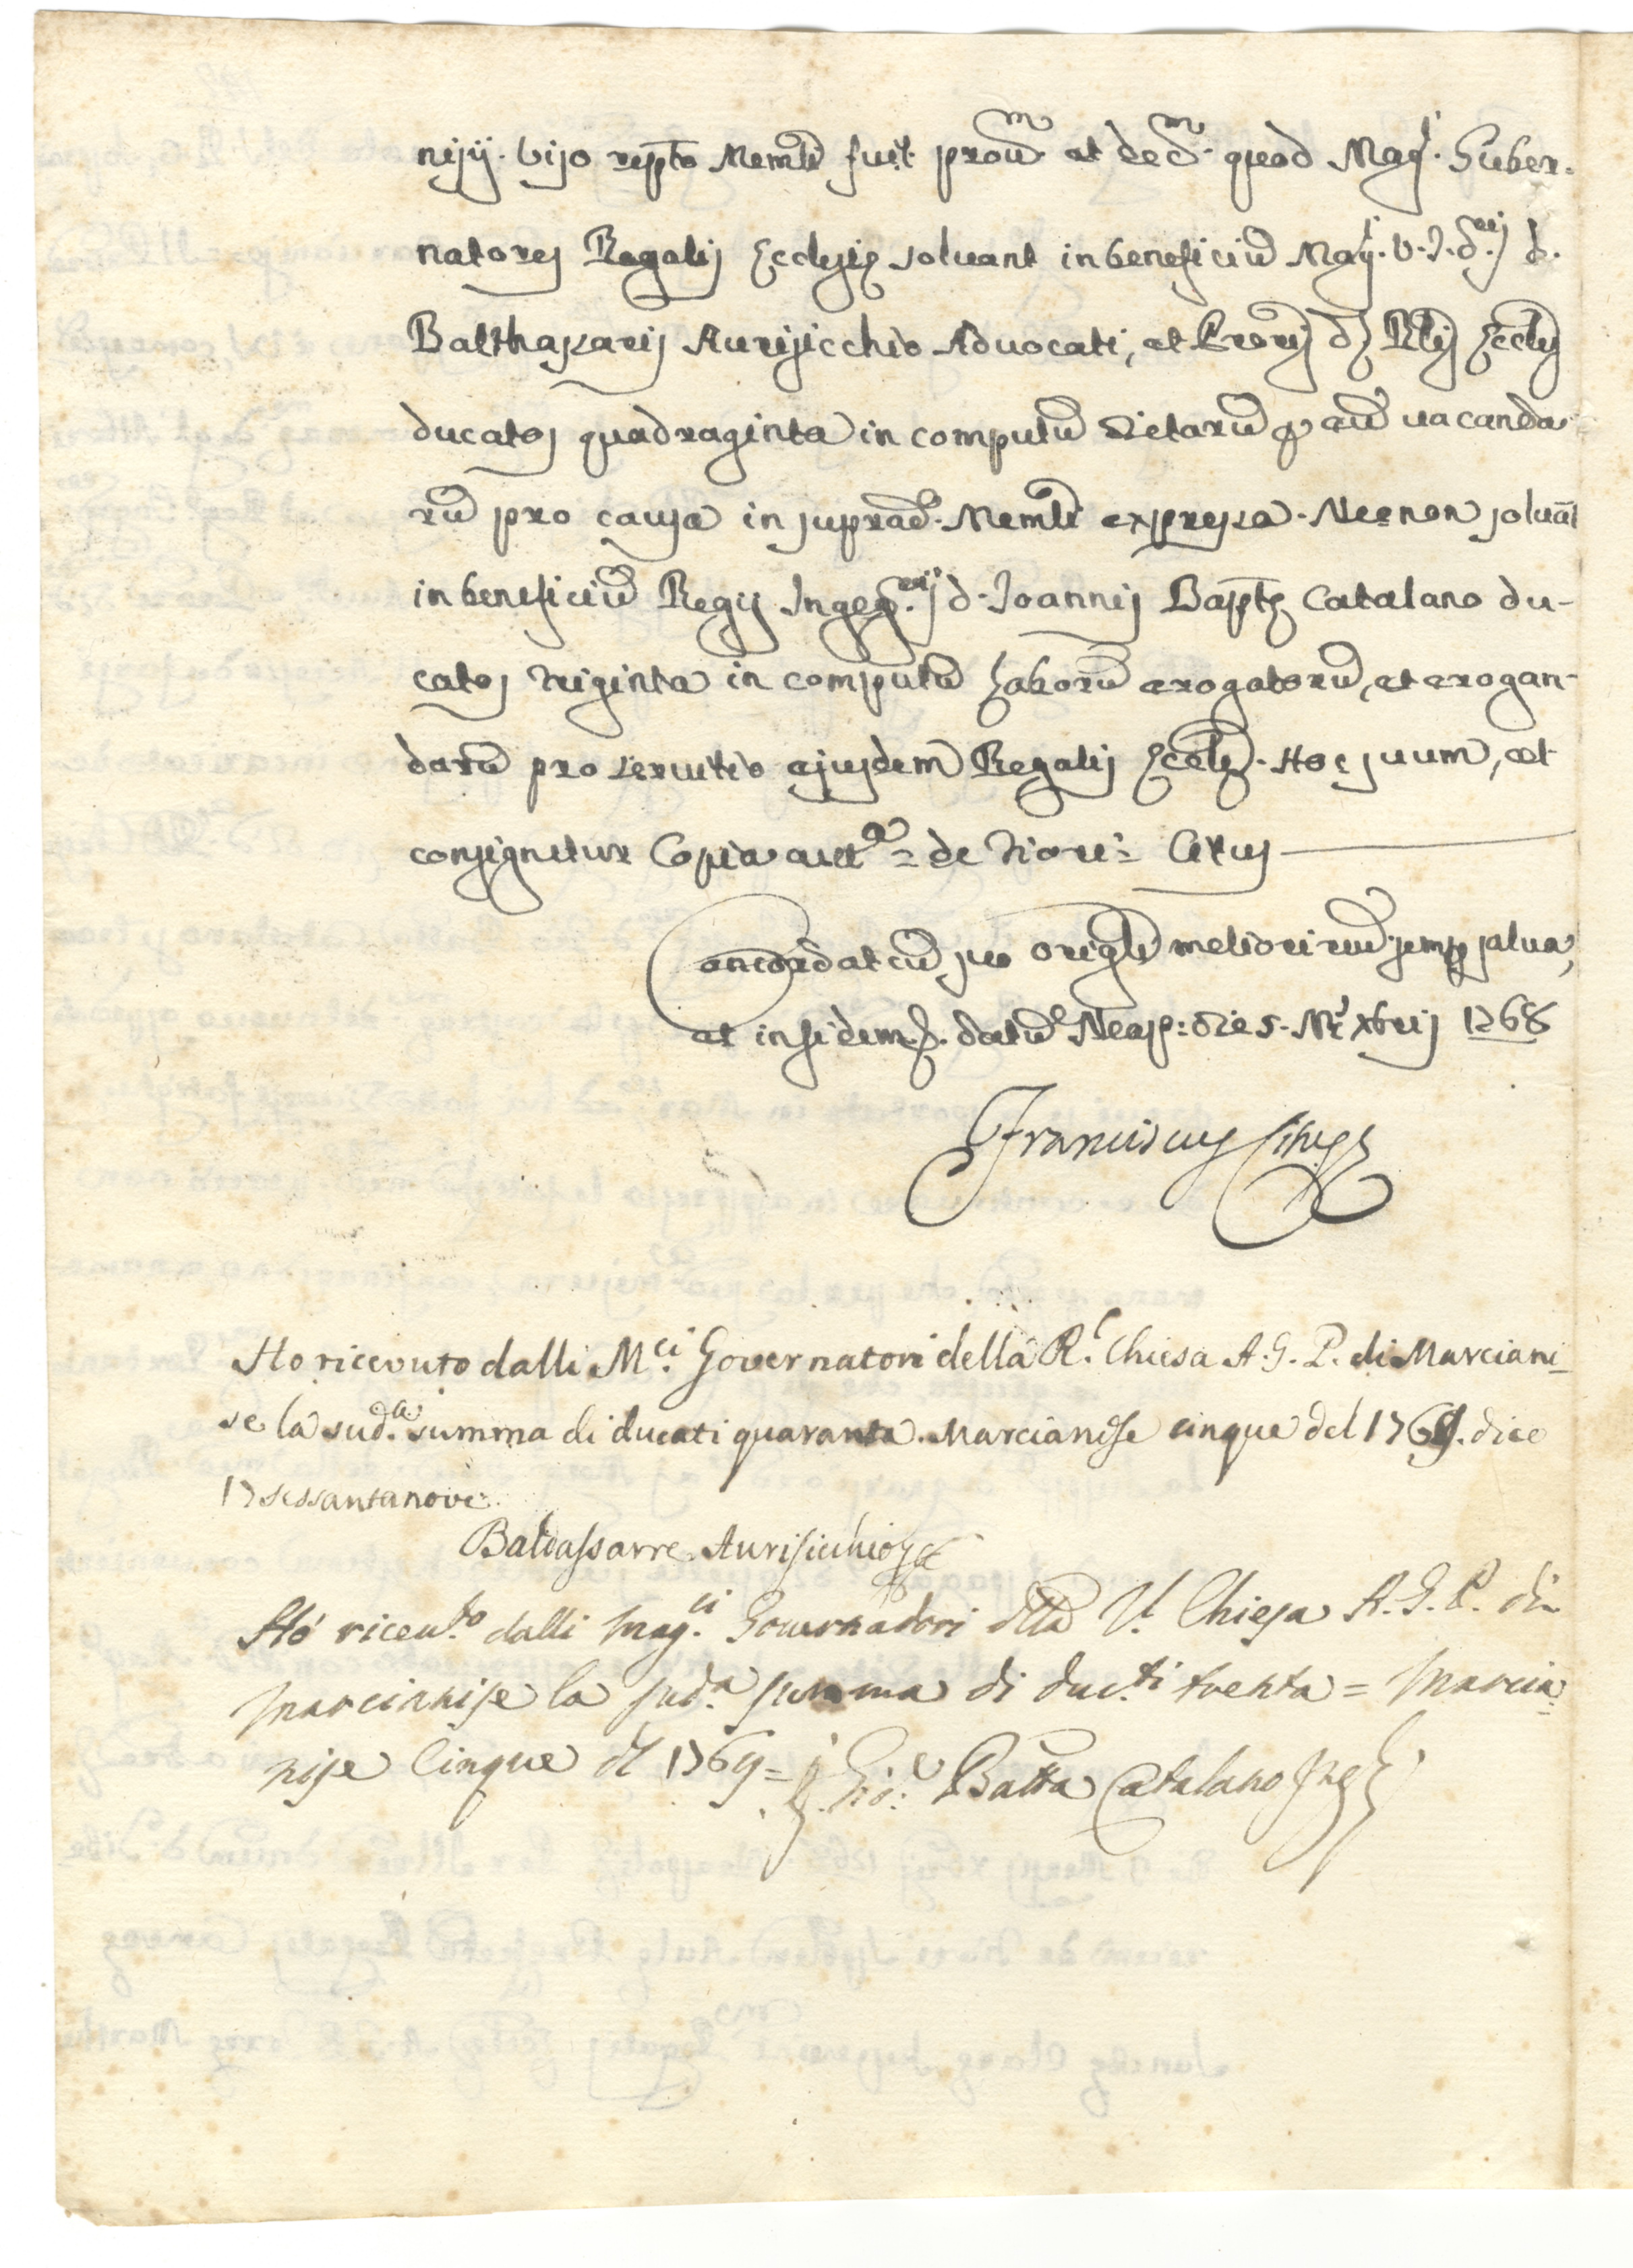 nisij. viso rep̃to Mem̃li fuit provũ et decr̃m quod Mag.ci Guber-
natores Regalis Ecclesiæ solvant in beneficiũ Mag.ci U. J. d.ris d.
Balthassaris Aurisicchio Advocati, et Pro͠ris d.æ R͠lis Eccl͠iæ
ducatos quadraginta in computũ dietarũ vacanda-
rũ pro causa in suprad.o Mem̃li expressa. Necnon solvãt
in beneficiũ Regij Ingeg.rij d. Joannis Bap͠tæ Catalano du-
catos triginta in computũ laborũ erogatorũ, et erogan-
dorũ pro servitio ejusdem Regalis Eccl͠iæ. Hoc suum, et
consignetur Copia aut.ca = de Fiore = Citus
Concordat cũ suo orig͠li meliori semp salva,
et in fidem datũ Neap: die 5. M.s Xbris 1768
Franciscus Citus
Ho ricevuto dalli M.ci Governatori della R.l Chiesa A. G. P. di Marciani-
se la sud.a summa di ducati quaranta. Marcianise cinque del 1769. dico
17 sessantanove.
Baldassarre Aurisicchio
Hó ricevu.to dalli Mag.ci Governadori d͠lla Chiesa A. G. P. di
Marcianise la sud.a summa di duc.ti trenta = Marcia-
nise Cinque del 1769 = Gio: Batt͠a Catalano Ing.